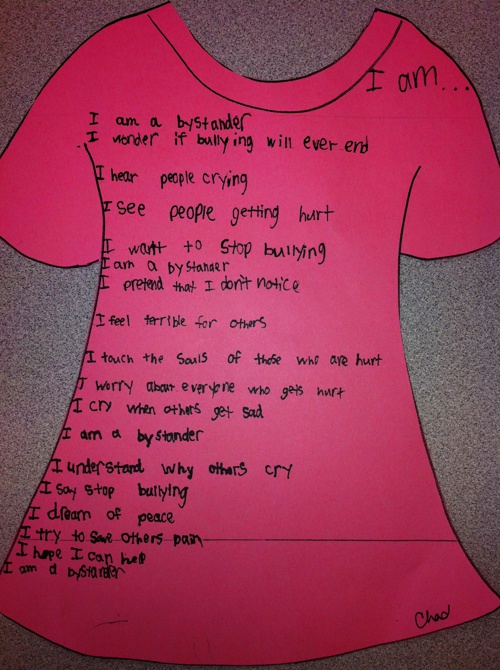 I am...
I am a bystander
I wonder if bullying will ever end
I hear people crying
I see people getting hurt
I want to stop bullying
I am a bystander
I pretend that I don't notice
I feel terrible for others
I touch the souls of those who are hurt
I worry about everyone who gets hurt
I cry when others get sad
I am a bystander
I understand why others cry
I say stop bullying
I dream of peace
I try to save others pain
I hope I can help
I am a bystander
Chad